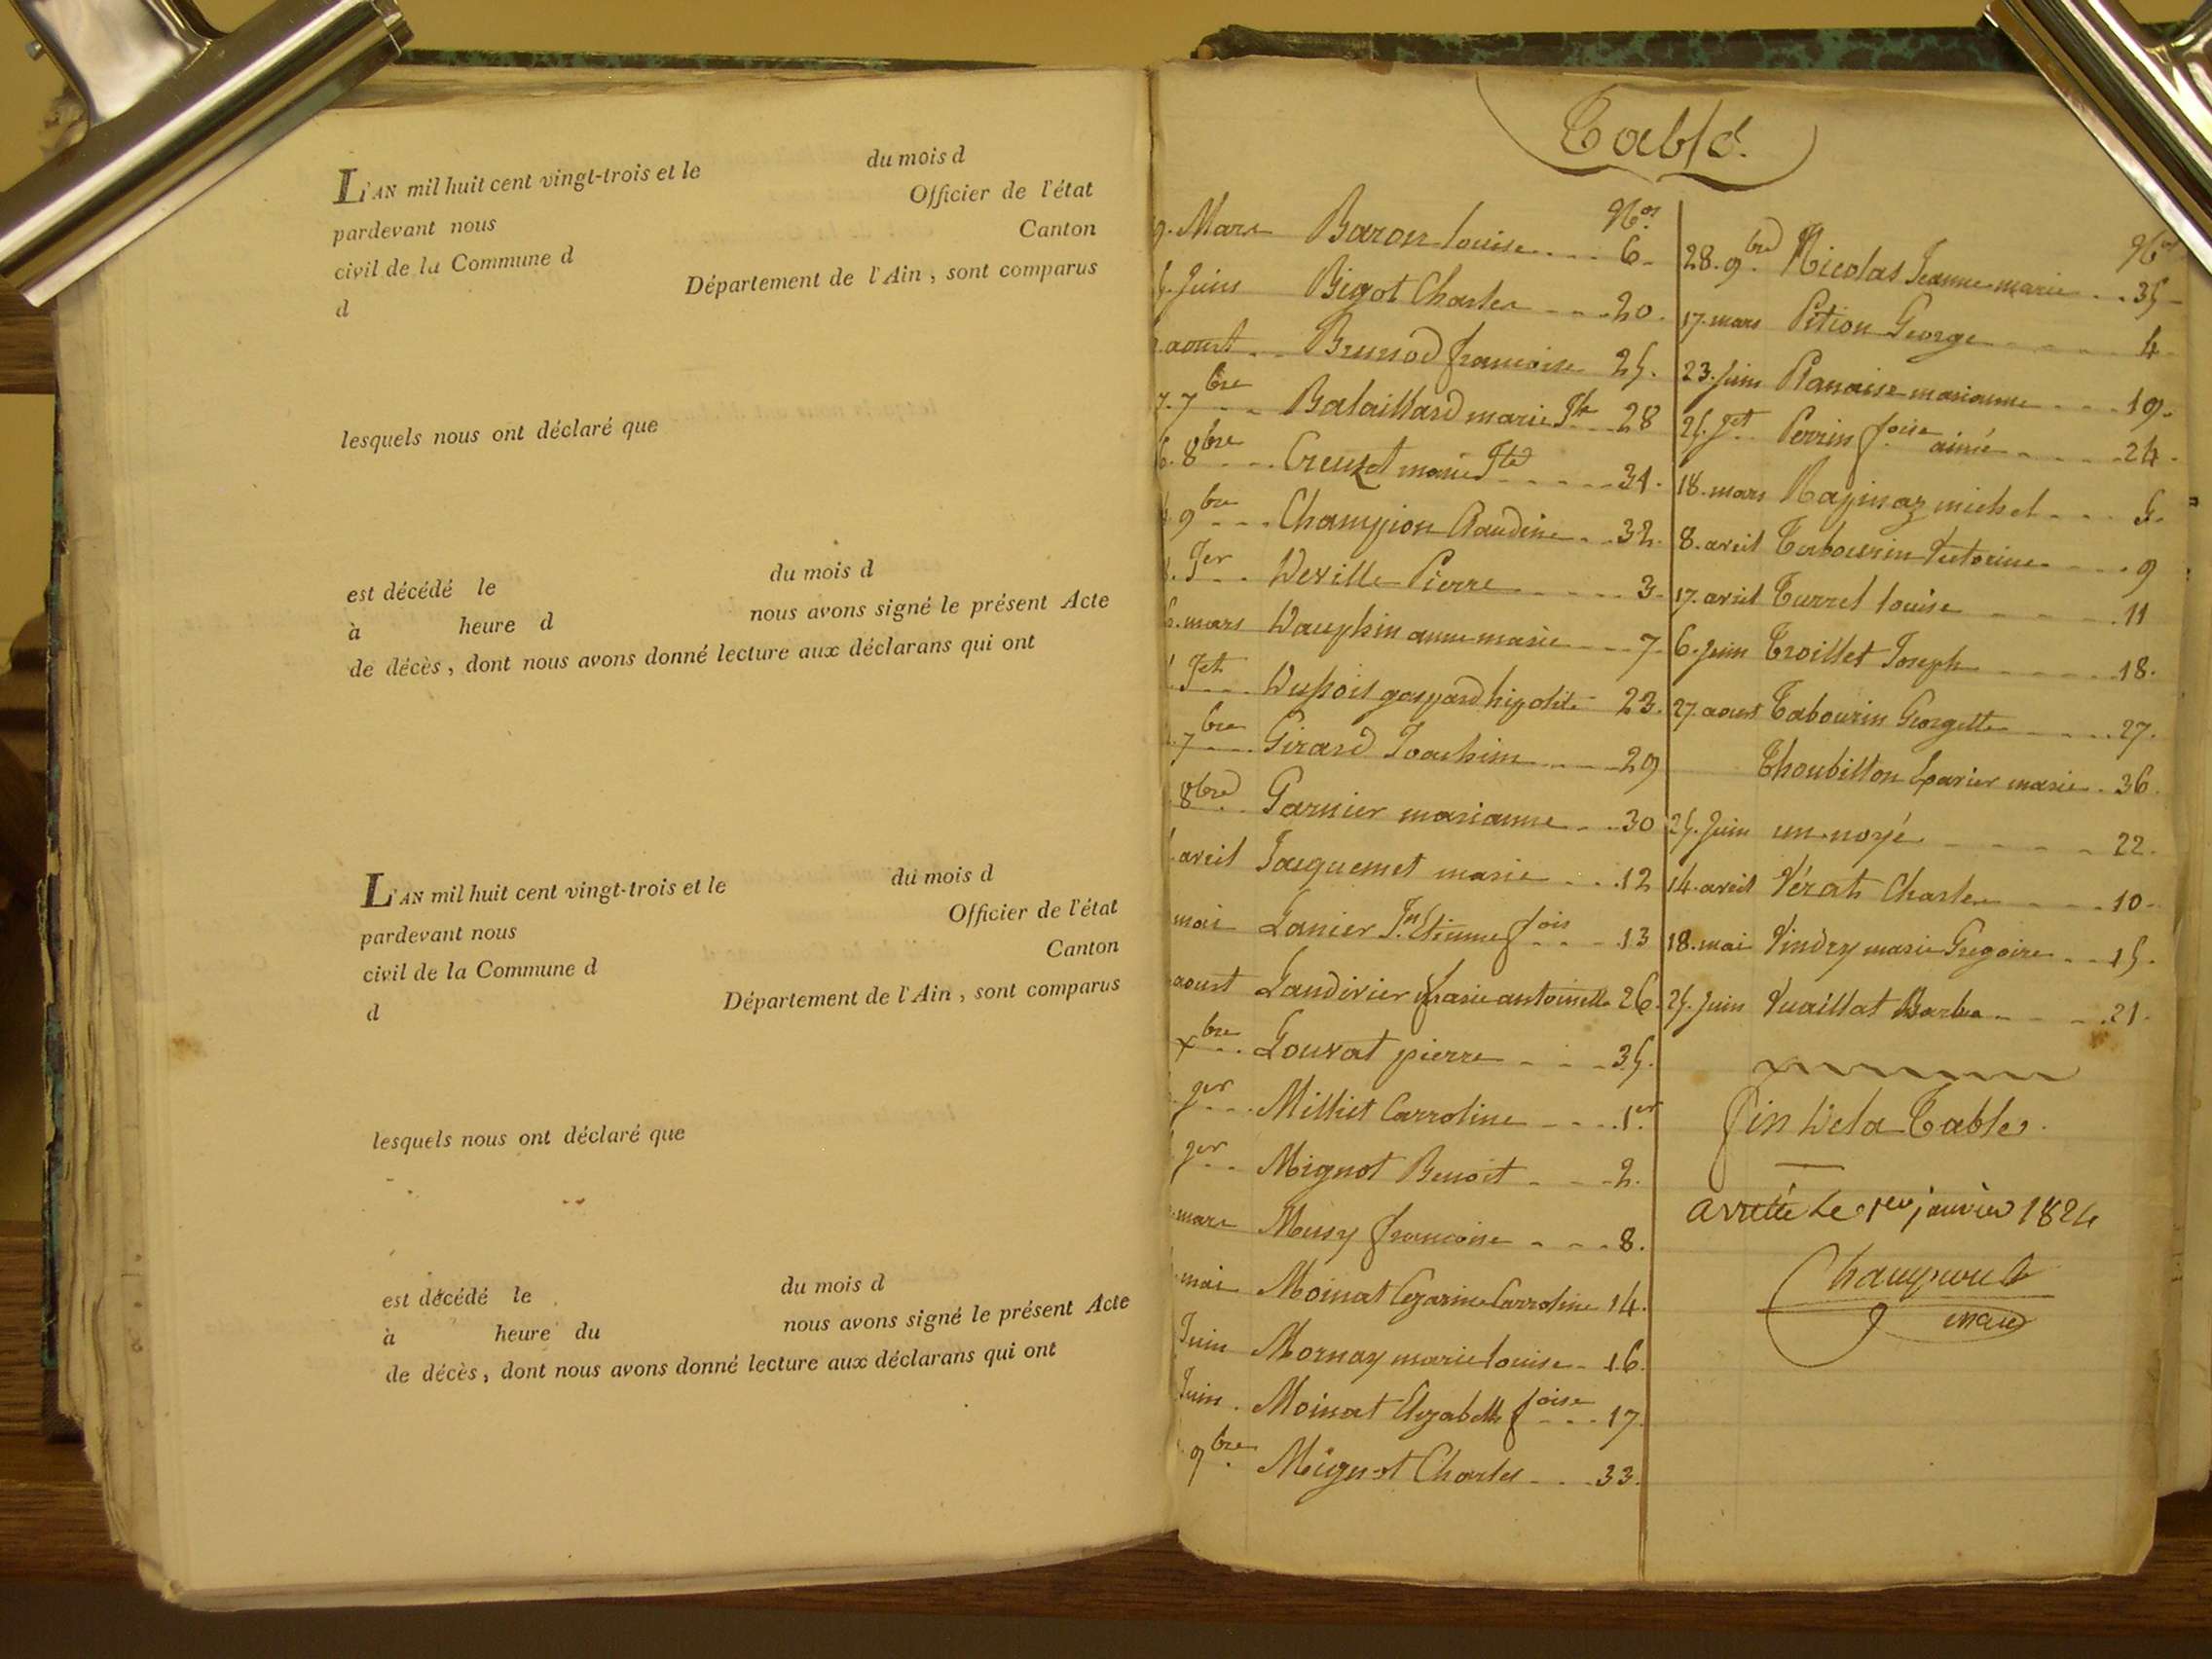 L'AN mil huit cent vingt-trois et le du mois d
pardevant nous Officier de l'état
civil de la Commune d Canton
d Département de l'Ain, sont comparus
lesquels nous ont déclaré que
est décédé le du mois d
à heure d nous avons signé le présent Acte
de décès, dont nous avons donné lecture aux déclarans qui ont
L'AN mil huit cent vingt-trois et le du mois d
pardevant nous Officier de l'état
civil de la Commune d Canton
d Département de l'Ain, sont comparus
lesquels nous ont déclaré que
est décédé le du mois d
à heure du nous avons signé le présent Acte
de décès, dont nous avons donné lecture aux déclarans qui ont
Table.
Nos
9. Mars Baron louise 6
Juin Bigot Charles 20.
aoust Brunod francoise 25.
7.bre Balaillard marie Jte 28
6. 8bre Creuzet marie Jte 31.
9bre Champion Claudine 32.
Jer Deville Pierre 3
mars Dauphin anne marie 7
Jet Dubois gaspard hipolite 23.
7bre Girard Joachim 29
8bre Garnier marianne 30
avril Jacquemet marie 12
mai Lanier Jn Etienne fois 13
aoust Landivier marie antoinette 26.
xbre Louvat pierre 35.
Jer Milliet Carroline 1er
Jer Mignot Benoit 2.
mars Musy francoise 8.
mai Moinat Carroline 14.
Juin Mornay marie louise 16.
Juin Moinat Elizabeth foise 17.
9bre Mignot Charles 33.
Nos
28. 9bre Nicolas Jeanne marie 35
17. mars Pition George 4
23. Juin Planaise marianne 19.
25. Jet Perrin foise aimé 24
18. mars Rapinaz michel 5.
8. avril Tabourin Victorine 9
17. avril Turrel louise 11
6. Juin Troillet Joseph 18.
27. aoust Tabourin Georgette 27.
Thoubillon marie 36.
25. Juin un noyé 22.
14. avril Vérat Charles 10
18. mai Vindry marie Gregoire 15.
25. Juin Vuaillat Barbe 21.
fin de la Table.
arretée le 1er janvier 1824